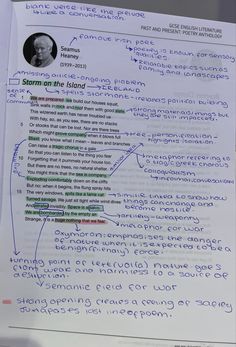 blank verse like the prelude
like a conversation.
GCSE ENGLISH LITERATURE
PAST AND PRESENT: POETRY ANTHOLOGY
famous irish poet
Seamus
Heaney
(1939–2013)
poetry is known for sensory
Relatable topics such as
family and landscapes
missing article - ongoing problem
Storm on the Island
IRELAND
Spells stormont
political building
We are prepared: we build our houses squat,
Sink walls in rock and roof them with good slate.
This wizened earth has never troubled us
With hay, so, as you see, there are no stacks
Or stooks that can be lost. Nor are there trees
Which might prove company when it blows full
Blast: you know what I mean – leaves and branches
Can raise a tragic chorus in a gale
So that you can listen to the thing you fear
Forgetting that it pummels your house too.
But there are no trees, no natural shelter.
You might think that the sea is company,
Exploding comfortably down on the cliffs
But no: when it begins, the flung spray hits
The very windows, spits like a tame cat
Turned savage. We just sit tight while wind dives
And strafes invisibly. Space is a salvo.
We are bombarded by the empty air.
Strange, it is a huge nothing that we fear.
strong materials/things but
they're still insecure.
tree - personification -
highlights isolation
metaphor referring to
a tragic greek chorus
Colloquialism
informal conversational
Simile linked to show how
things can change and
become hostile
artillery - weaponry
metaphor for war
Oxymoron: emphasises the danger
of nature when it is expected to be a
benign (friendly) force.
turning point of text (volta) nature goes
from weak and harmless to a source of
destruction.
Semantic field for war
Strong opening creates a feeling of safety
juxtaposes last line of poem.